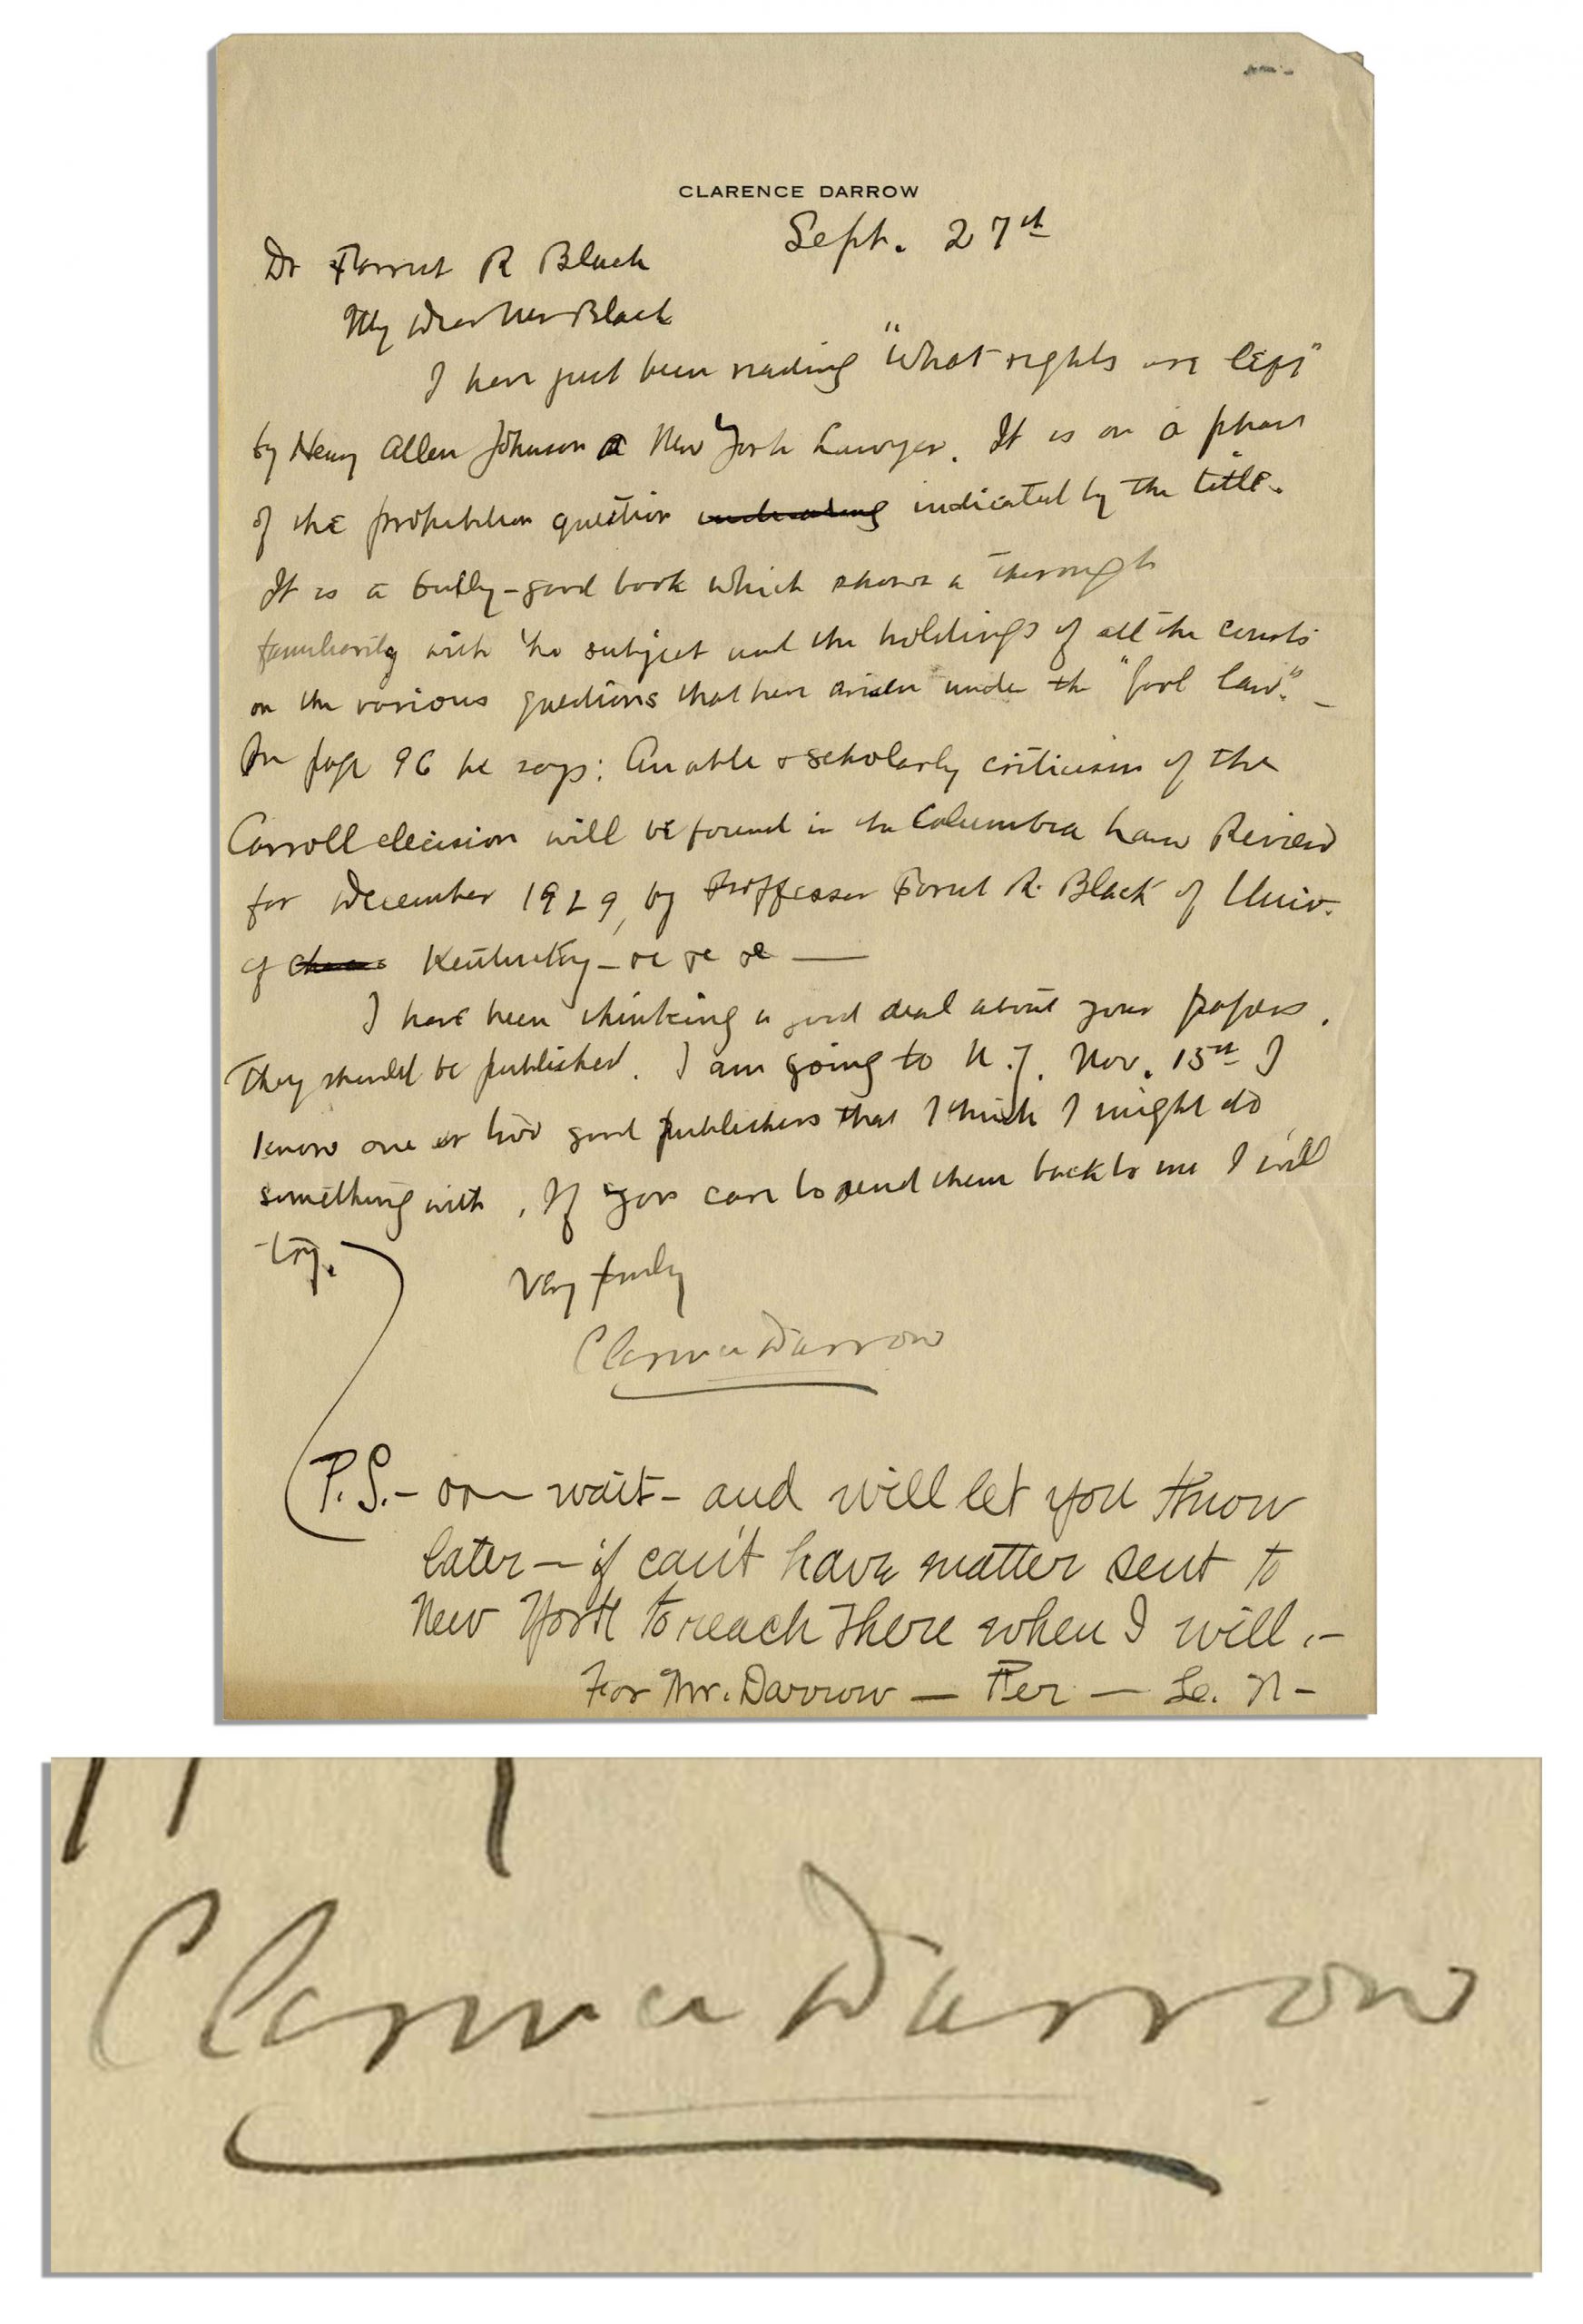 CLARENCE DARROW
Sept. 27th
Dr Forrest R Black
My Dear Mr Black
I have just been reading "What rights are left"
by Henry Allen Johnson a New York Lawyer. It is on a phase
of the prohibition question indicated by the title.
It is a bully-good book which shows a thorough
familiarity with the subject and the holdings of all the courts
on the various questions that have arisen under the "fool law". –
On page 96 he says: An able & scholarly criticism of the
Carroll decision will be found in the Columbia Law Review
for December 1929, by Proffessor Forrest R. Black of Univ.
of Kentucky –
I have been thinking a good deal about your papers.
They should be published. I am going to N.Y. Nov. 15th I
know one or two good publishers that I think I might do
something with. If you care to send them back to me I will
try.
Very truly
Clarence Darrow
P.S. – or – wait – and will let you know
later – if can't have matter sent to
New York to reach there when I will. –
For Mr. Darrow – Per – Le. N –
Clarence Darrow